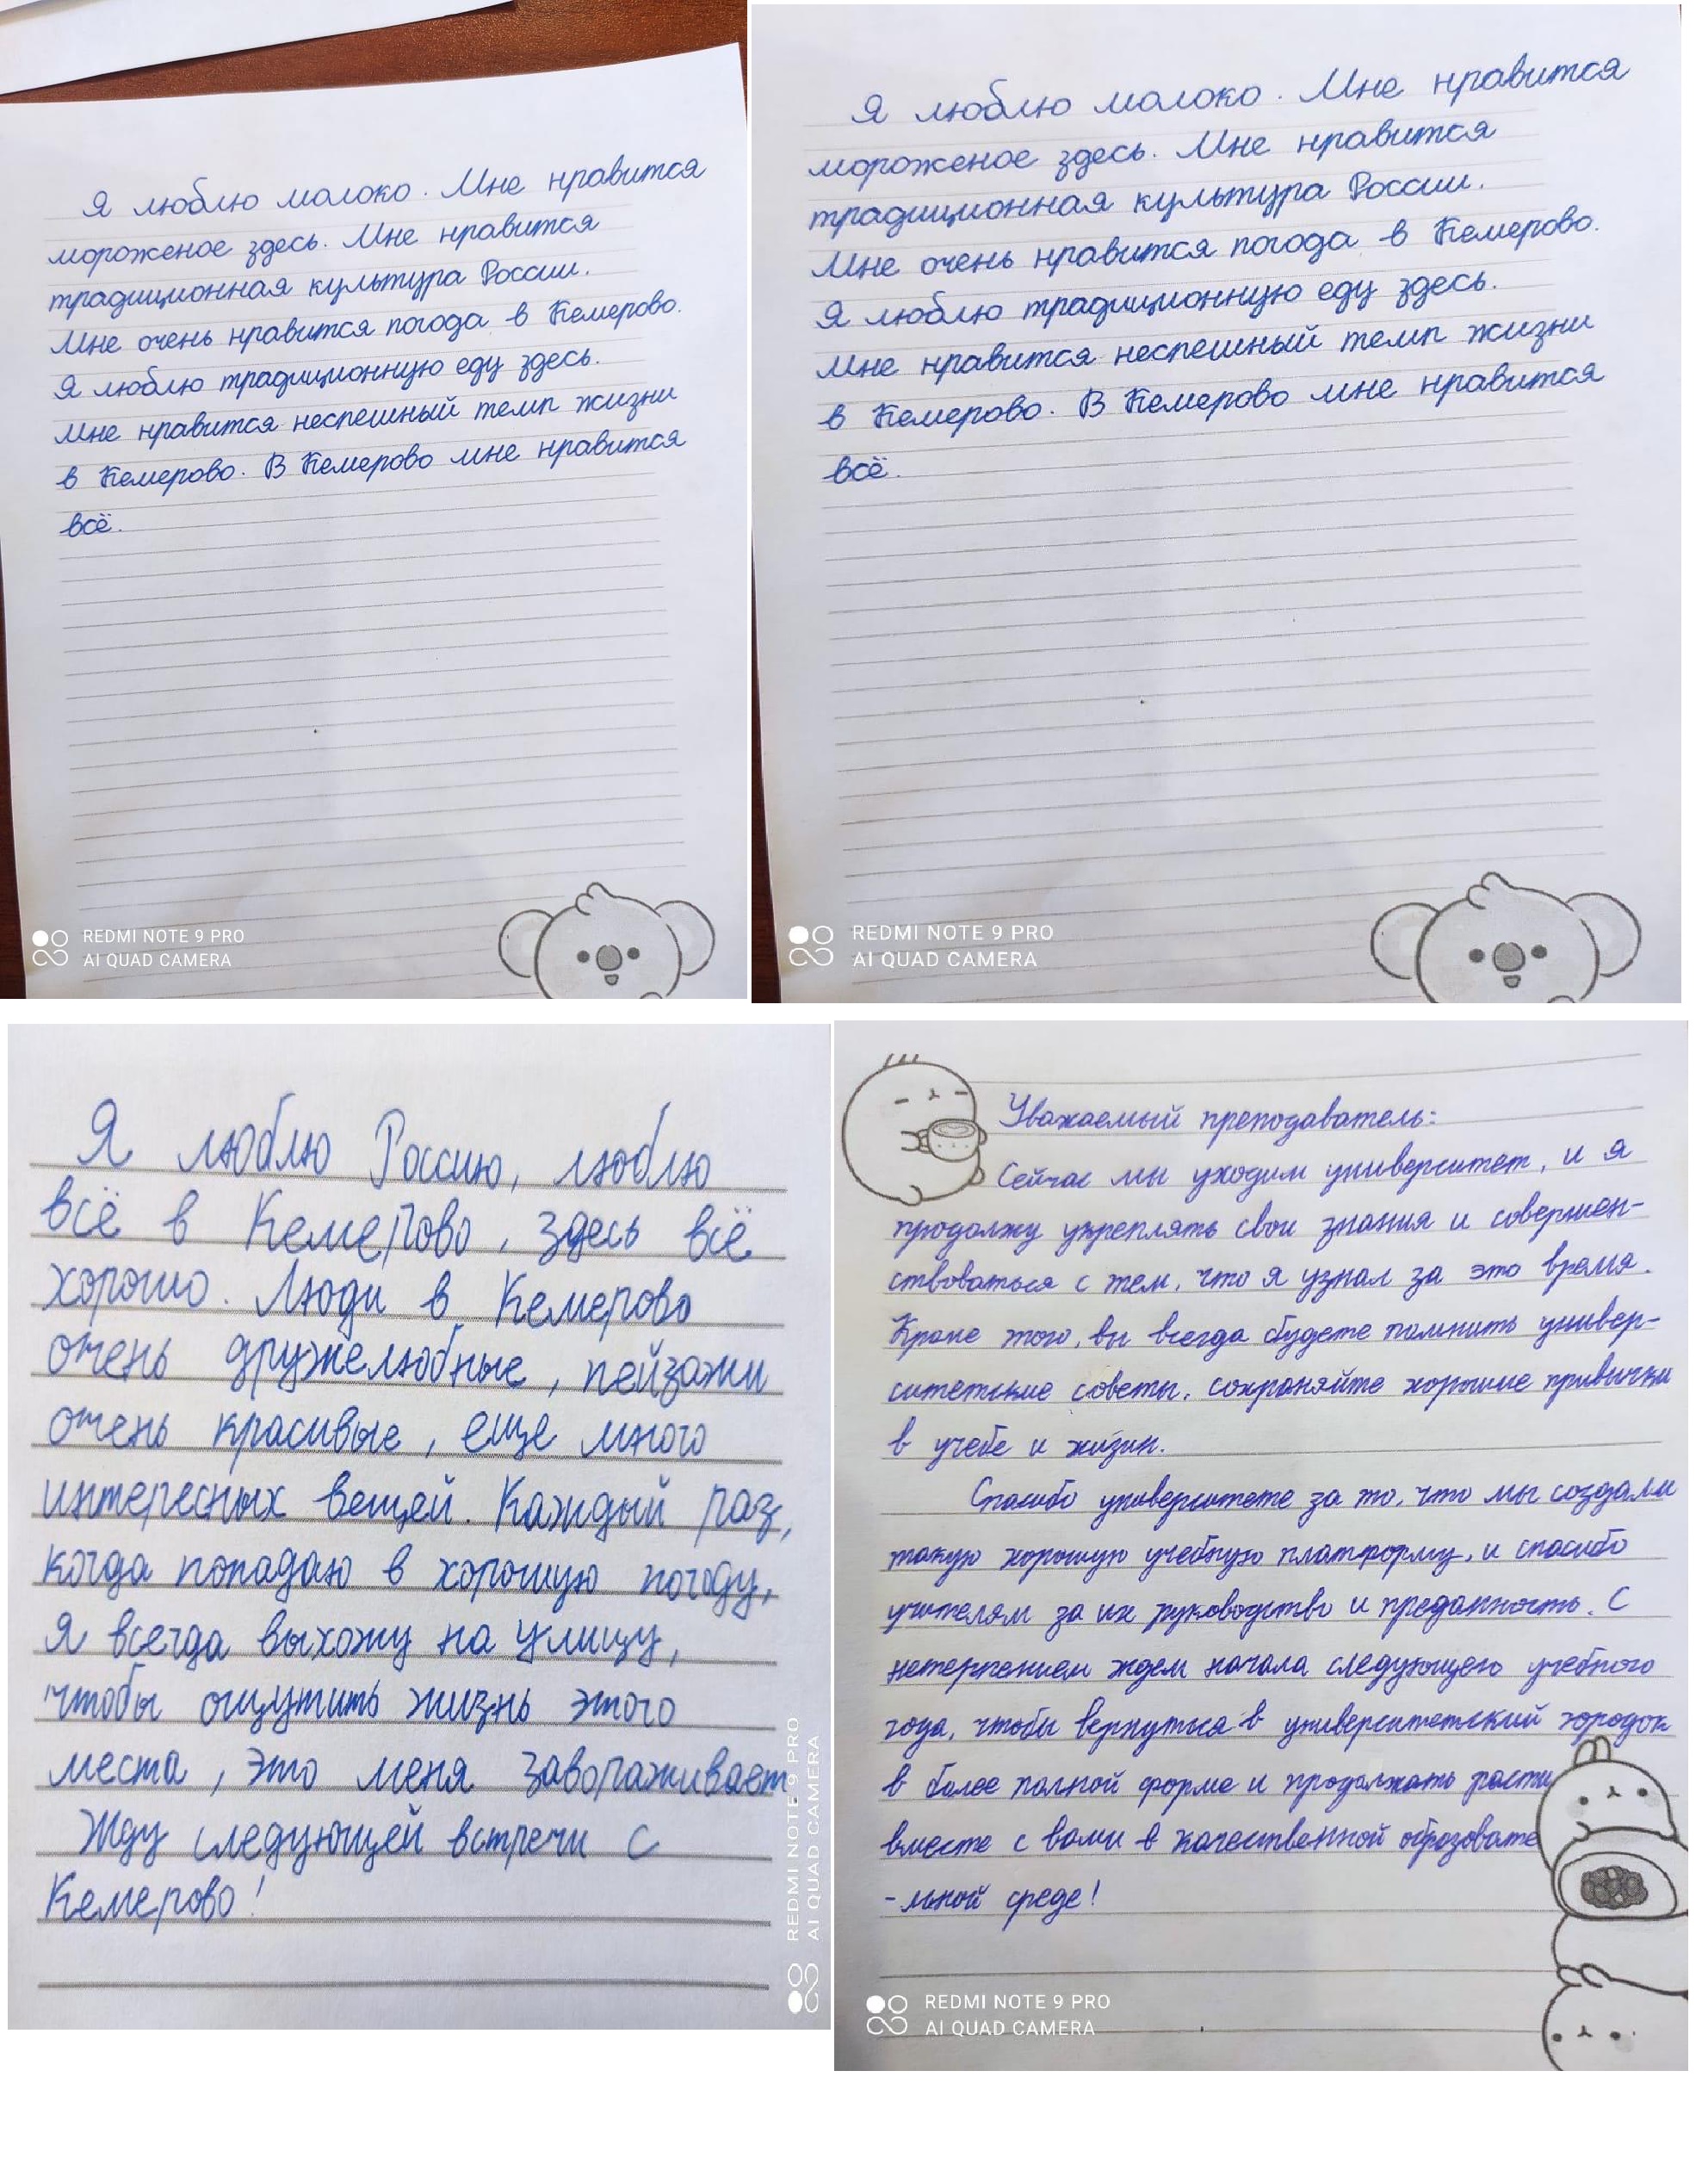 Я люблю молоко. Мне нравится
мороженое здесь. Мне нравится
традиционная культура России.
Мне очень нравится погода в Кемерово.
Я люблю традиционную еду здесь.
Мне нравится неспешный темп жизни
в Кемерово. В Кемерово мне нравится
всё.
REDMI NOTE 9 PRO
AI QUAD CAMERA
Я люблю молоко. Мне нравится
мороженое здесь. Мне нравится
традиционная культура России.
Мне очень нравится погода в Кемерово.
Я люблю традиционную еду здесь.
Мне нравится неспешный темп жизни
в Кемерово. В Кемерово мне нравится
всё.
REDMI NOTE 9 PRO
AI QUAD CAMERA
Я люблю Россию, люблю
всё в Кемерово, здесь всё
хорошо. Люди в Кемерово
очень дружелюбные, пейзажи
очень красивые, еще много
интересных вещей. Каждый раз,
когда попадаю в хорошую погоду,
я всегда выхожу на улицу,
чтобы ощутить жизнь этого
места, это меня завораживает
Жду следующей встречи с
Кемерово!
REDMI NOTE 9 PRO
AI QUAD CAMERA
Уважаемый преподаватель:
Сейчас мы уходим университет, и я
продолжу укреплять свои знания и совершен-
ствоваться с тем, что я узнал за это время.
Кроме того, вы всегда будете помнить универ-
ситетские советы, сохраняйте хорошие привычки
в учебе и жизни.
Спасибо университете за то, что мы создали
такую хорошую учебную платформу, и спасибо
учителям за их руководство и преданность. С
нетерпением ждем начала следующего учебного
года, чтобы вернуться в университетский городок
в более полной форме и продолжать расти
вместе с вами в качественной образовате
-льной среде!
REDMI NOTE 9 PRO
AI QUAD CAMERA